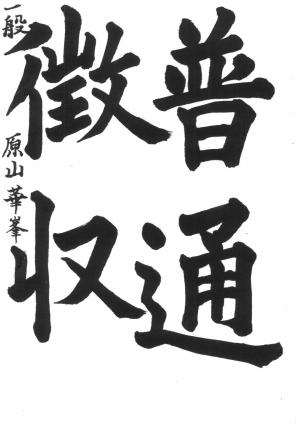 普通
徴収
一般 原山華峯